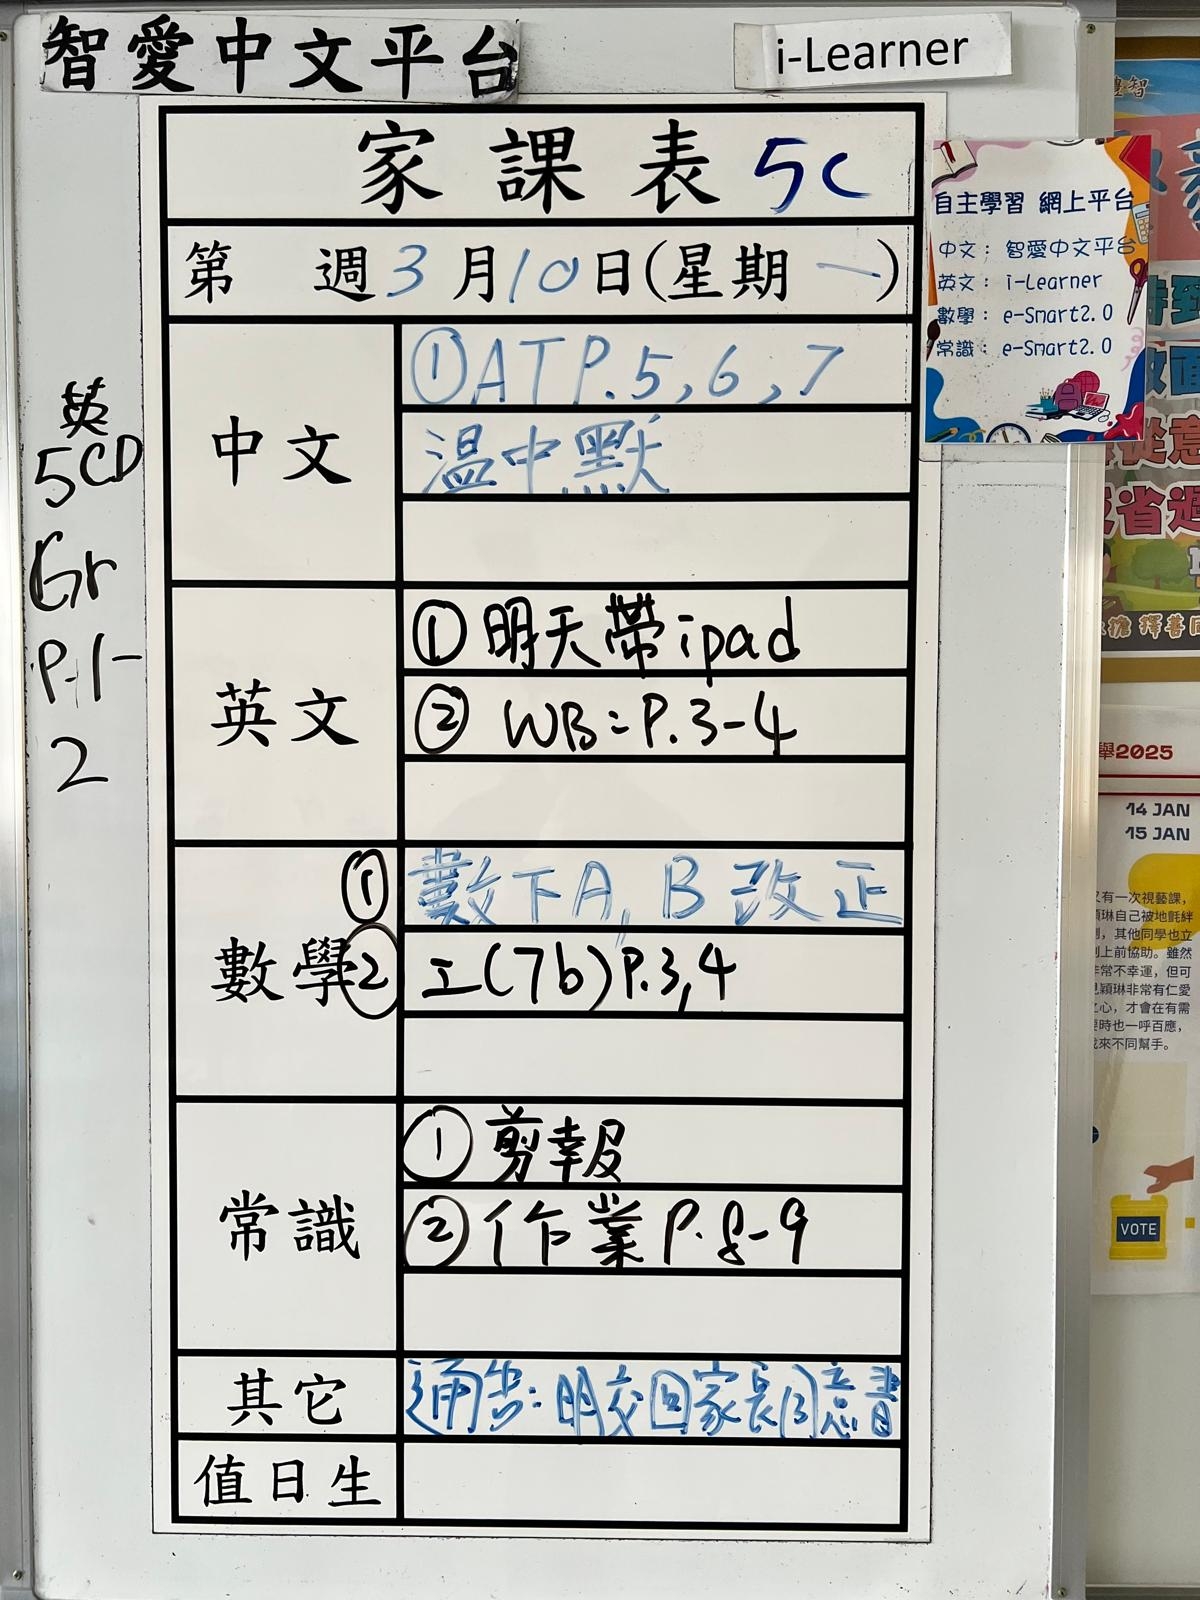 智愛中文平台
i-Learner
家課表 5C
第 週 3月10日(星期一)
中文
①ATP.5,6,7
温中默
英文
①明天帶ipad
② WB:P.3-4
數學
① 數下A,B改正
② 工(7b)P.3,4
常識
① 剪報
② 作業P.8-9
其它
通告:明交回家長同意書
值日生
英
5CD
Gr
P.1-
2
自主學習 網上平台
中文: 智愛中文平台
英文: i-Learner
數學: e-Smart2.0
常識: e-Smart2.0
舉2025
14 JAN
15 JAN
又有一次視藝課,
穎琳自己被地氈絆
倒,其他同學也立
刻上前協助。雖然
非常不幸運,但可
見穎琳非常有仁愛
之心,才會在有需
要時也一呼百應,
找來不同幫手。
VOTE